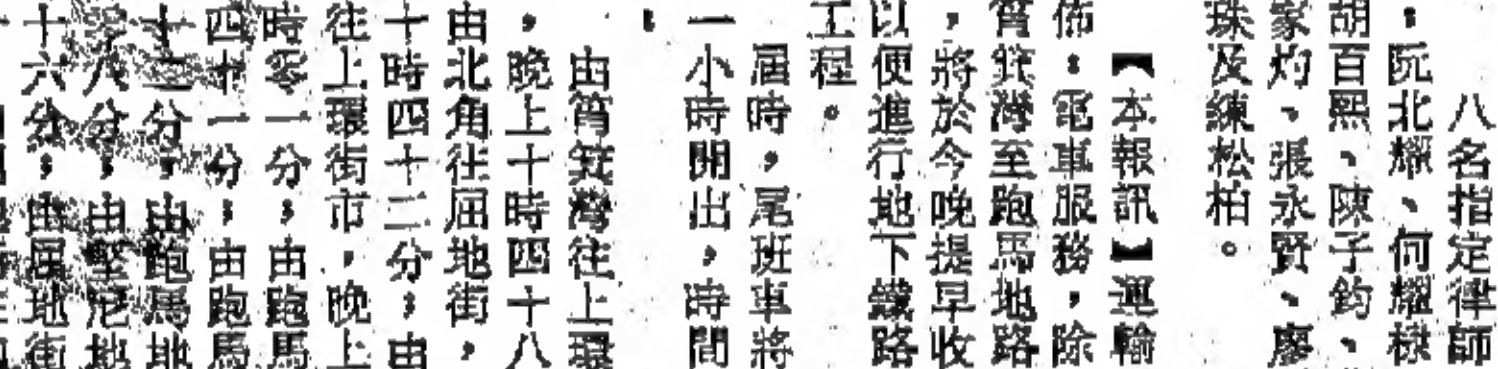 八名指定律師
：阮北耀、何耀棣
胡百熙、陳子鈞、
家灼、張永賢、廖
珠及練松柏。
【本報訊】運輸
佈：電車服務，除
筲箕灣至跑馬地路
，將於今晚提早收
以便進行地下鐵路
工程。
屆時，尾班車將
一小時開出，時間
：
由筲箕灣往上環
，晚上十時四十八
由北角往屈地街，
十時四十二分；由
往上環街市，晚上
時零一分；由跑馬
四十一分；由跑馬
十二分；由跑馬地
八分；由堅尼地
十六分；由屈地街